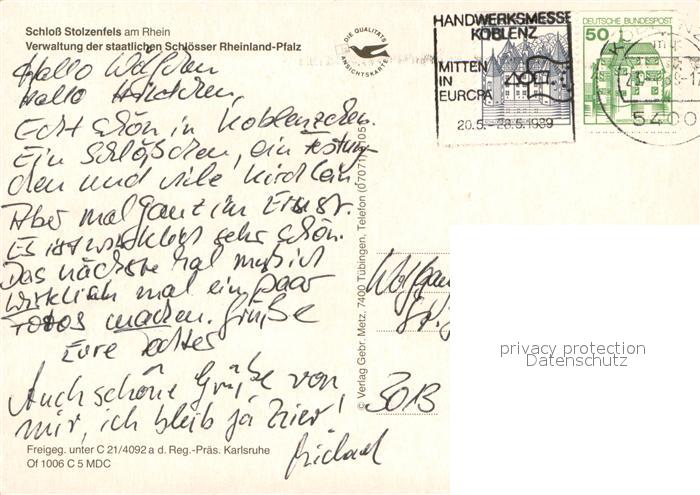 Schloß Stolzenfels am Rhein
Verwaltung der staatlichen Schlösser Rheinland-Pfalz
DIE QUALITÄTS
ANSICHTSKARTE
HANDWERKSMESSE
KOBLENZ
MITTEN
IN
EUROPA
20.5.-28.5.1989
50
DEUTSCHE BUNDESPOST
5400
Hallo
Hallo
Echt schön in Koblenzchen.
Ein Schlößchen, ein
chen und viele Kirchlein
Aber mal ganz im Ernst.
Es ist wirklich sehr schön.
Das nächste Mal muß ich
wirklich mal ein paar
Fotos machen. Grüße
Eure Tochter
Auch schöne Grüße von
mir, ich bleib ja hier!
Michael
Freigeg. unter C 21/4092 a d. Reg.-Präs. Karlsruhe
Of 1006 C 5 MDC
© Verlag Gebr. Metz, 7400 Tübingen, Telefon (07071)
Wolfgan
3013
privacy protection
Datenschutz